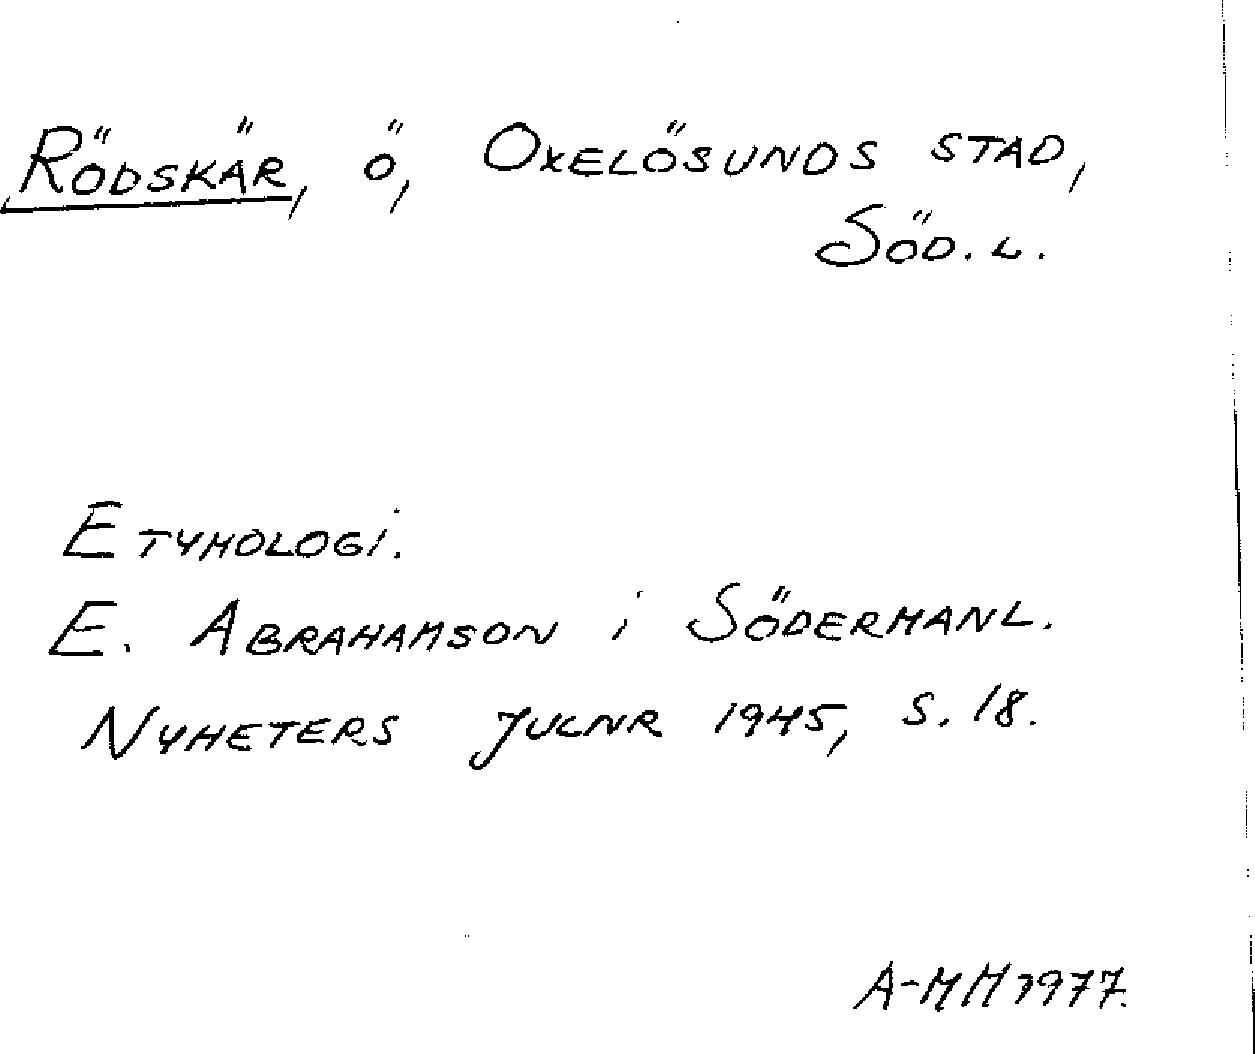 Rödskär, ö, Oxelösunds stad,
Söd. l.
Etymologi.
E. Abrahamson i Södermanl.
Nyheters Julnr 1945, s. 18.
A-MM 1977.